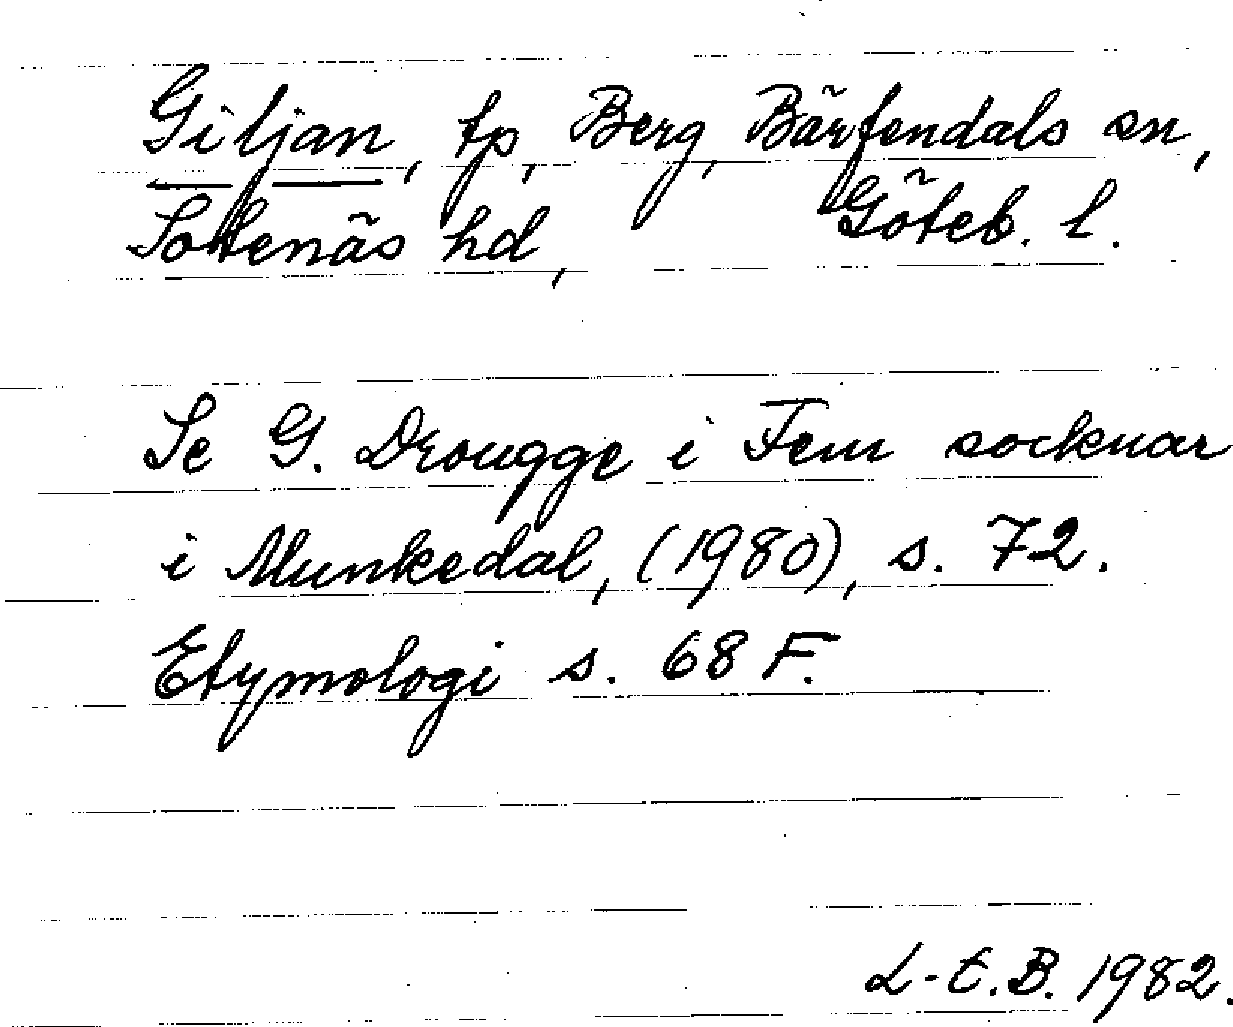 Giljan, tp, Berg, Bärfendals sn,
Sotenäs hd, Göteb. l.
Se G. Drougge i Fem socknar
i Munkedal, (1980), s. 72.
Etymologi s. 68 F.
L-E.B. 1982.